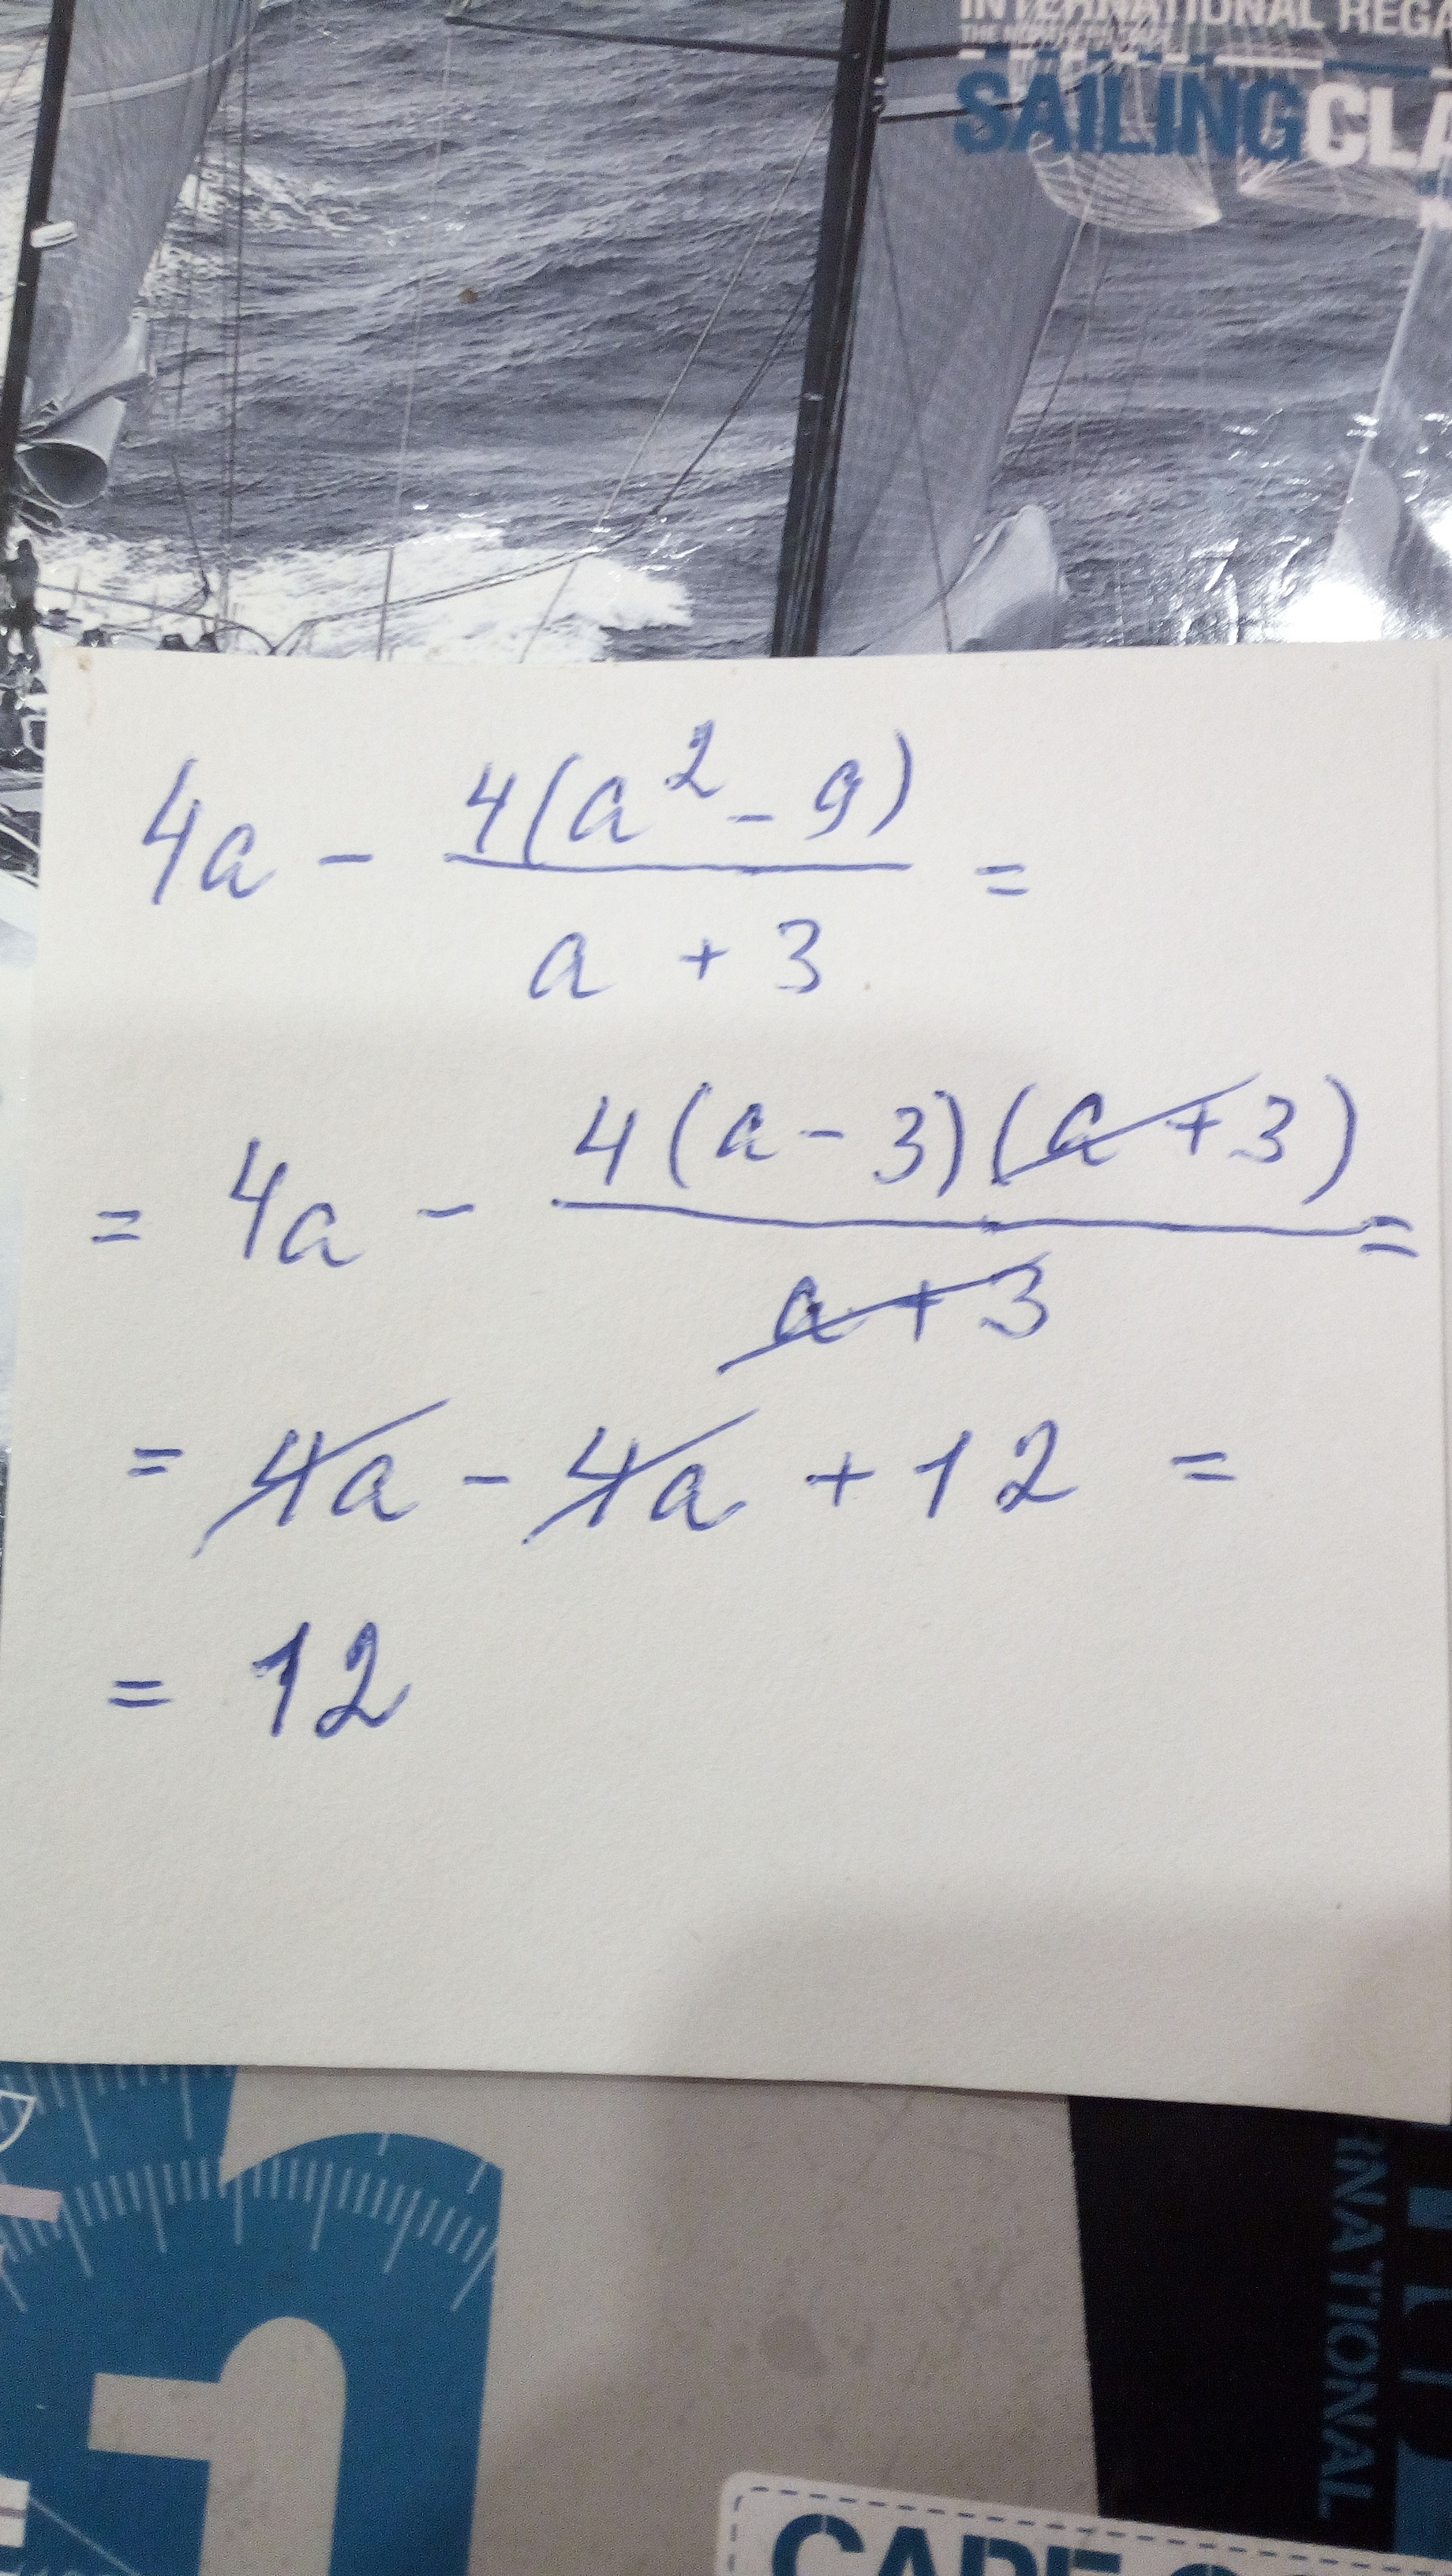 INTERNATIONAL REGA
SAILINGCLA
4a - 4(a² - 9) / a + 3 =
= 4a - 4(a - 3)(a + 3) / a + 3 =
= 4a - 4a + 12 =
= 12
RNATIONAL
CAPE